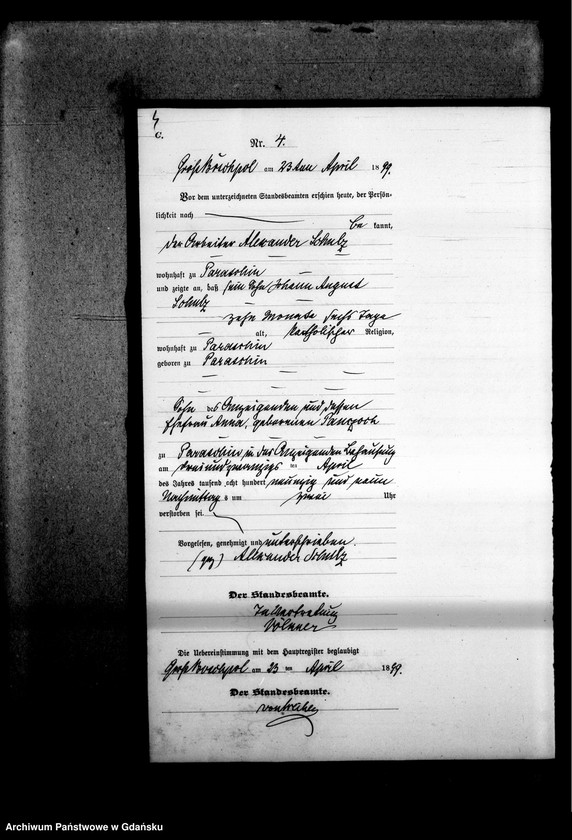 4
C.
Nr. 4.
am 23ten April 1899.
Vor dem unterzeichneten Standesbeamten erschien heute, der Persön-
lichkeit nach
be kannt,
der Arbeiter Alexander Schulz
wohnhaft zu Paraschin
und zeigte an, daß sein Sohn Johann August
Schulz
zehn Monate sechs Tage
alt, katholischer Religion,
wohnhaft zu Paraschin
geboren zu Paraschin
Sohn des Anzeigenden und dessen
Ehefrau Anna, geborenen
zu Paraschin, in des Anzeigenden Behausung
am dreiundzwanzigsten April
des Jahres tausend acht hundert neunzig und neun
Nachmittags um zwei Uhr
verstorben sei.
Vorgelesen, genehmigt und unterschrieben.
(gez) Alexander Schulz
Der Standesbeamte.
In Vertretung
Die Uebereinstimmung mit dem Hauptregister beglaubigt
am 23 ten April 1899.
Der Standesbeamte.
Archiwum Państwowe w Gdańsku